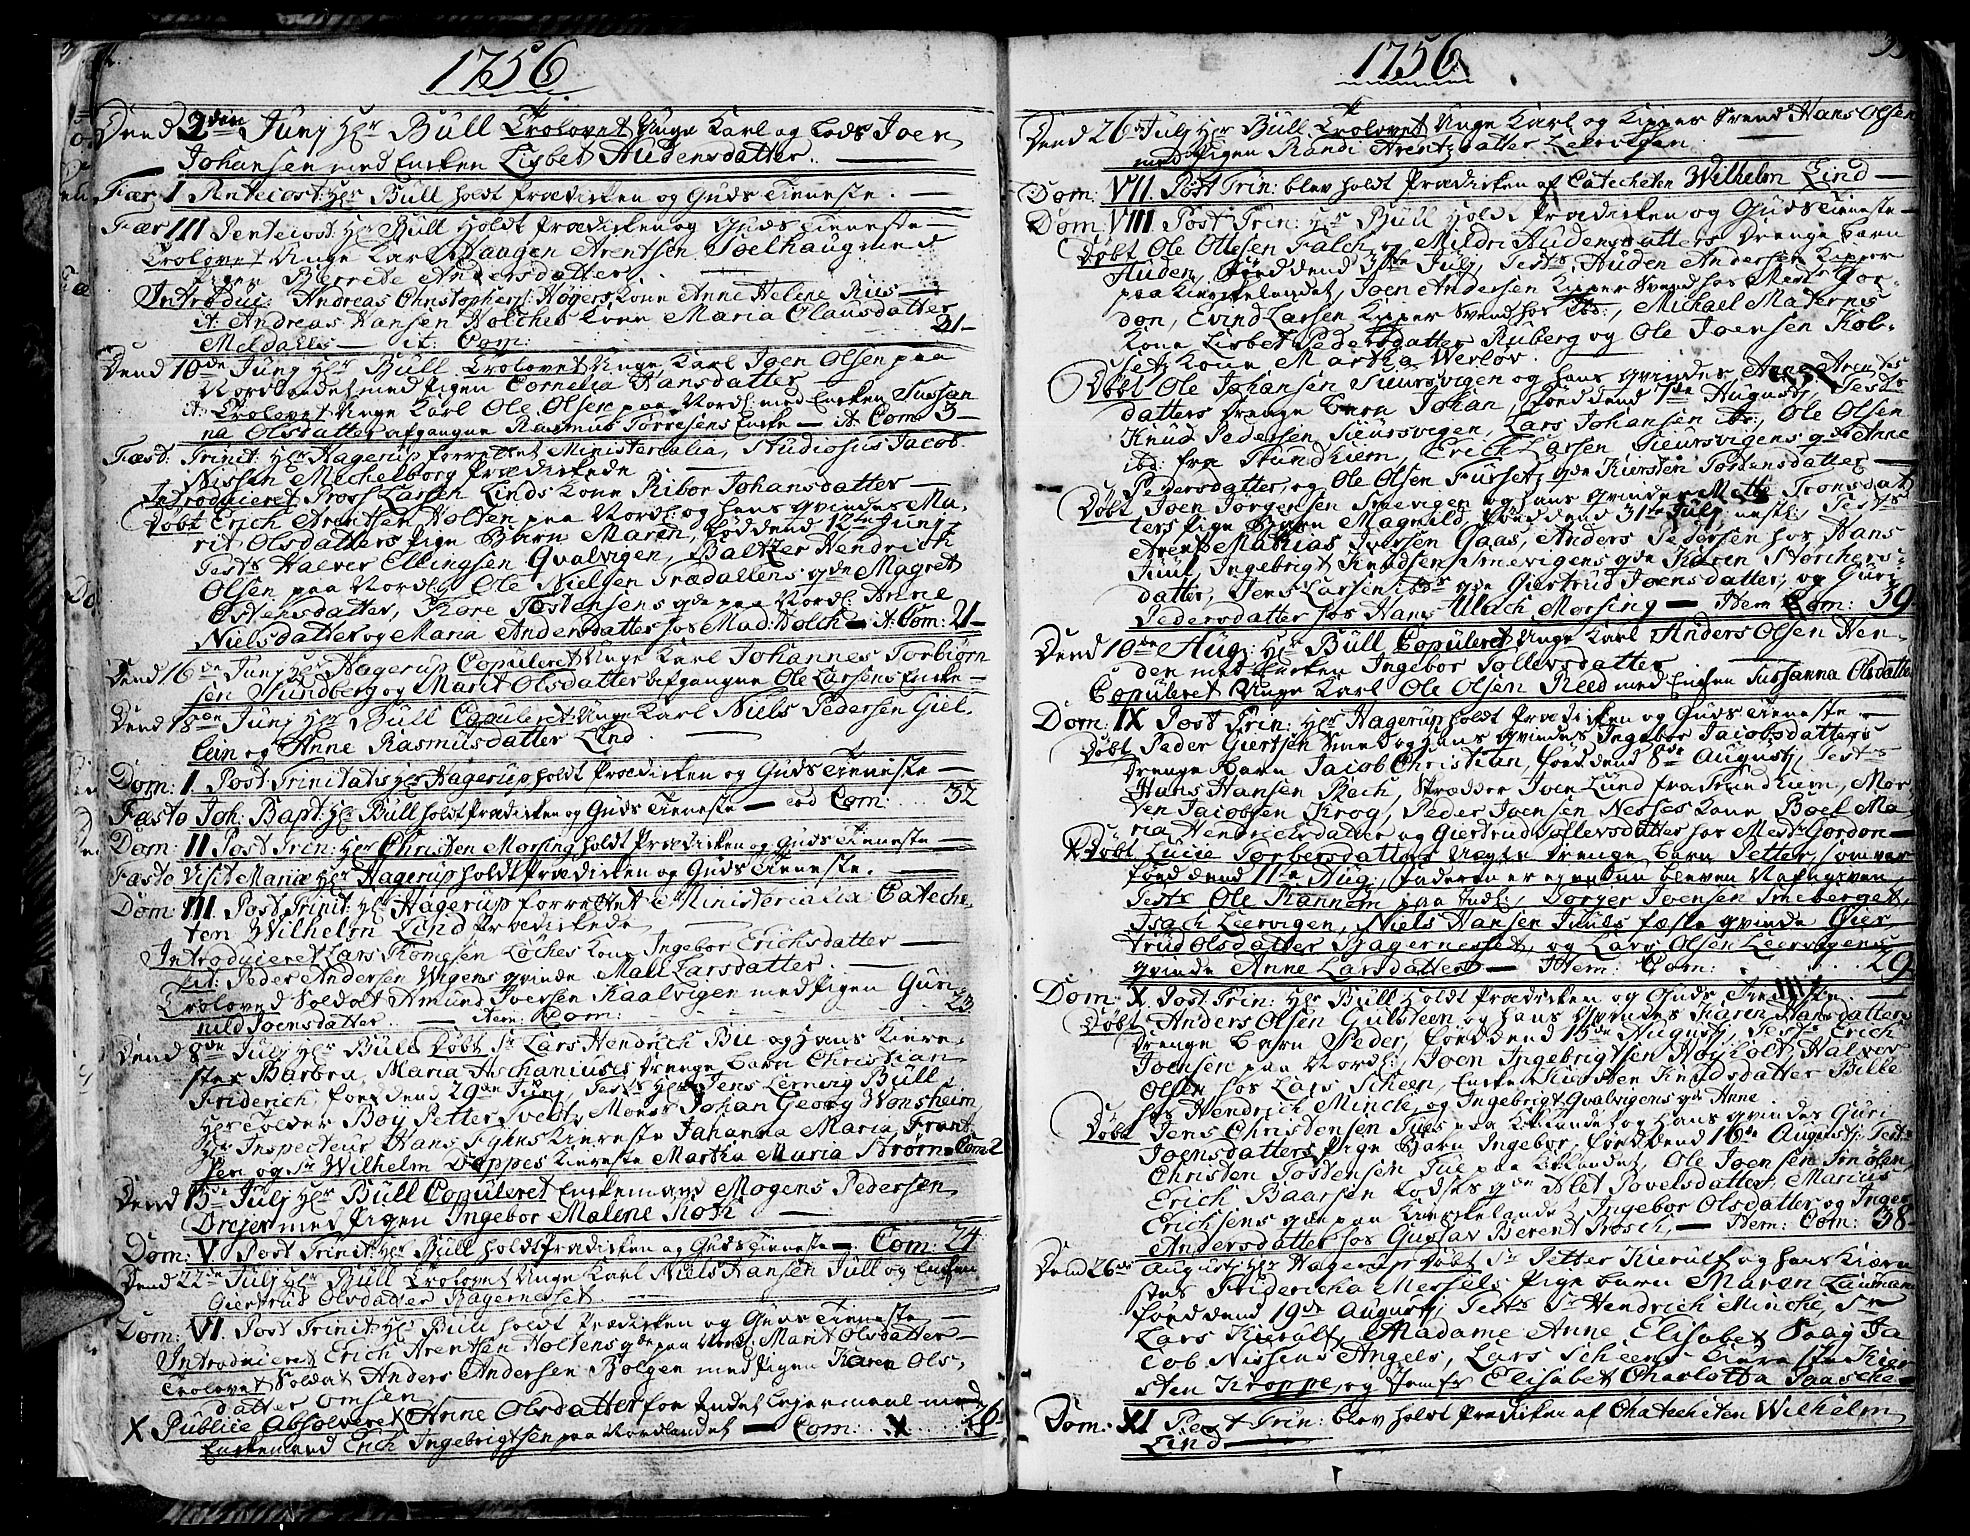 1756
Dend 2den Junj Hr Bull Trolovet Unge Karl og Lods Joen
Johansen med Encken Lisbet Audensdatter.
Fær: I Pentecost: Hr Bull holdt Prædicken og Guds Tieneste.
Fær III Pentecost: Hr Bull holdt Prædicken og Guds Tieneste
Trolovet Unge Karl Haagen Arentsen Soelhaug med
Pigen Berrete Andersdatter
Introduc: Andreas Christophers: Høyers Kone Anne Helene Rus
it: Andreas Hansen Holches Kone Maria Clausdatter
Meldalls it: Com: 21
Dend 10de Junj Hr Bull Trolovet Unge Karl Joen Olsen paa
Nordlandet med Pigen Cornelia Hansdatter
it: Trolovet Unge Karl Ole Olsen paa Nordl: med Encken Sussan
na Olsdatter afgangne Rasmus Torresens Encke it: Com 3
Fæst: Trinit: Hr Hagerup forrettet Ministerialia, Studiosus Jacob
Nissen Mechelborg Prædickede
Introduceret Pross Larsen Linds Kone Ribor Johansdatter
Døbt Erich Arentsen Holten paa Nordl: og hans Qvindes Ma-
rit Olsdatters Pige Barn Maren, fød dend 12te Junj
Test: Halver Ellingsen Qvalvigen, Baltzer Hendrich
Olsen paa Nordl: Ole Nielsen Trædallens qde Magret
Ostensdatter, Tore Tostensens qde paa Nordl: Anne
Nielsdatter og Maria Andersdatter hos Mad: Holch it: Com: 21
Dend 16de Junj Hr Hagerup Copuleret Unge Karl Johannes Torbiørn
sen Sundberg og Marit Olsdatter afgangne Ole Larsens Encke
Dend 18de Junj Hr Bull Copuleret Unge Karl Niels Pedersen Giel-
lein og Anne Rasmusdatter Lind
Dom: I Post Trinitatis Hr Hagerup holdt Prædicken og Guds Tieneste
Fæsto Joh: Bapt: Hr Bull holdt Prædicken og Guds Tieneste Com: 32
Dom: II Post Trin: Hr Christen Morsing holdt Prædicken og Guds Tieneste
Fæsto Visit Mariæ Hr Hagerup holdt Prædicken og Guds Tieneste.
Dom: III. Post Trinit: Hr Hagerup forrettet Ministerialia Cateche-
ten Wilhelm Lind Prædickede
Introduceret Lars Thomesen Løches Kone Ingebor Erichsdatter
it: Peder Andersen Wigens Qvinde Mali Larsdatter
Troloved Soldat Amund Iversen Kaalvigen med Pigen Guri-
nild Joensdatter item: Com: 23
Dend 8de Julj Hr Bull Døbt Sr Lars Hendrich Bie og hans Kiere-
stes Barbra, Maria Aschaniusis Drenge Barn Christian
Friderich, fød dend 29de Junj, Test: Hr Jens Lerning Bull
Hr Tolder Boy Petter Tvedt, Monsr Johan Georg Wonsheim
Hr Inspecteur Hans Kiereste Johanna Maria Frant
sen og Sr Wilhelm Doppes Kiereste Martha Maria Strøm Com 2
Dend 15de Julj Hr Bull Copuleret Enckemand Mogens Pedersen
Drejer med Pigen Ingebor Malene Roth
Dom: V. Post Trinit: Hr Bull holdt Prædicken og Guds Tieneste Com: 24
Dend 22de Julj Hr Bull Trolovet Unge Karl Niels Hansen Jull og Encken
Giertrud Olsdatter Bagernesset
Dom: VI. Post Trinit: Hr Bull holdt Prædicken og Guds Tieneste
Introduceret Erich Arentsen Holtens qde paa Nordl: Marit Olsdatter
Trolovet Soldat Anders Andersen Bolgen med Pigen Karen Ols-
datter Omsen
X Publice Absolveret Anne Olsdatter for Endel Lejermaal med
Enckemand Erich Ingebrigtsen paa Nordlandet Com: X 26
1756
Dend 26de Julj Hr Bull Trolovet Unge Karl og Kipper Svend Hans Olsen
med Pigen Randi Arentzdatter Leervigen
Dom: VII. Post Trin: blev holdt Prædicken af Catecheten Wilhelm Lind
Dom: VIII Post Trin: Hr Bull holdt Prædicken og Guds Tieneste
Døbt Ole Olesen Falch og Mildri Audensdatters Drenge Barn
Auden, fød dend 31te Julj, Test: Auden Andersen Kipper
paa Kirckelandet, Joen Andersen Kipper Svend hos Medr Gor-
don, Evind Larsen Kipper Svend hos ibd:, Michael Madernes
Kone Lisbet Pedersdatter Ruberg og Ole Joensen Kol-
set Kone Martha Werlov.
Døbt Ole Johansen Sieursvigen og hans Qvindes Anne Arents
datters Drenge Barn Johan, fød dend 7de Augustj Test:
Knud Pedersen Sieursvigen, Lars Johansen ib:, Ole Olsen
ibd: fra Trundhiem, Erich Larsen Sieursvigens qde Anne
Pedersdatter, og Ole Olsen Fursetz qde Kiersten Tostensdatter
Døbt Joen Jørgensen Smevigen og hans Qvindes Mette Tronsdat
ters Pige Barn Magnild, fød dend 31te Julj nestl:, Test:
Arent Mathias Iversen Gaas, Anders Pedersen hos Hans
Juul, Ingebrigt Knudsen Smevigens qde Karen Storchers-
datter, Jens Larsen Lods qde Giertrud Joensdatter, og Guri
Pedersdatter hos Hans Ulach Morsing Item Com: 39
Dend 10de Aug: Hr Bull Copuleret Unge Karl Anders Olsen Hen-
den med Encken Ingebor Tollevsdatter
Copuleret Unge Karl Ole Olsen Reed med Encken Sussanna Olsdatter
Dom: IX Post Trin: Hr Hagerup holdt Prædicken og Guds Tieneste
Døbt Peder Giertsen Smed og hans Qvindes Ingebor Jacobsdatters
Drenge Barn Jacob Christian, fød dend 8de Augustj, Test:
Hans Hansen Bach, Skrædder Iver Lund fra Trundhiem, Mor
ten Jacobsen Krog, Peder Joensen Nesses Kone Boel Ma-
ria Hendricksdatter og Giertrud Tollevsdatter hos Medr Gordon
X Døbt Lucie Torbersdatters Uægte Drenge Barn Petter, som var
fød dend 11te Aug:, Faderen er ej endnu bleven Nafngiven,
Test: Ole Rannem paa Indl:, Dorger Joensen Smeberget,
Isach Leervigen, Niels Hansen Juuls fæste Qvinde Gier
trud Olsdatter Bagernesset, og Lars Olsen Leervigens
Qvinde Anne Larsdatter Item: Com: 29
Dom: X. Post Trin: Hr Bull holdt Prædicken og Guds Tieneste
Døbt Anders Olsen Gulsteen og hans Qvindes Karen Hansdatters
Drenge Barn Peder, fød dend 15de Augustj, Test: Erich
Joensen paa Nordl:, Joen Ingebrigtsen Høyholt, Halvor
Olsen hos Lars Scheen, Encken Kiersten Knudsdatter Bilbe
hos Hendrich Mincke, og Ingebrigt Qvalvigens qde Anne
Døbt Jens Christensen Tues paa Kirckelandet og hans Qvindes Guri
Joensdatters Pige Barn Ingebor, fød dend 16de Augustj, Test:
Christen Tostensen Tue paa Kirckelandet, Ole Joensen Smølen,
Erich Baarsen Lodses qde Alet Povelsdatter, Marius
Erichsens qde paa Kirckelandet Ingebor Olsdatter og Inger
Andersdatter hos Gustav Berent Brosch, Item: Com: 38
Dend 26de Augustj Hr Hagerup Døbt Sr Petter Kierulf og hans Kiere
stes Fridericha Mersels Pige Barn Maren Laumann
fød dend 19de Augustj Test: Sr Hendrich Mincke, Sr
Lars Kierulf, Madame Anne Elisabet Saag Ja
cob Nissens Angels, Lars Scheens Kiereste Kier
sten Kroppe, og Jomfr Elisabet Charlotta Paasche
Dom: XI Post Trin: blev holdt Prædicken af Chatecheten Wilhelm
Lind